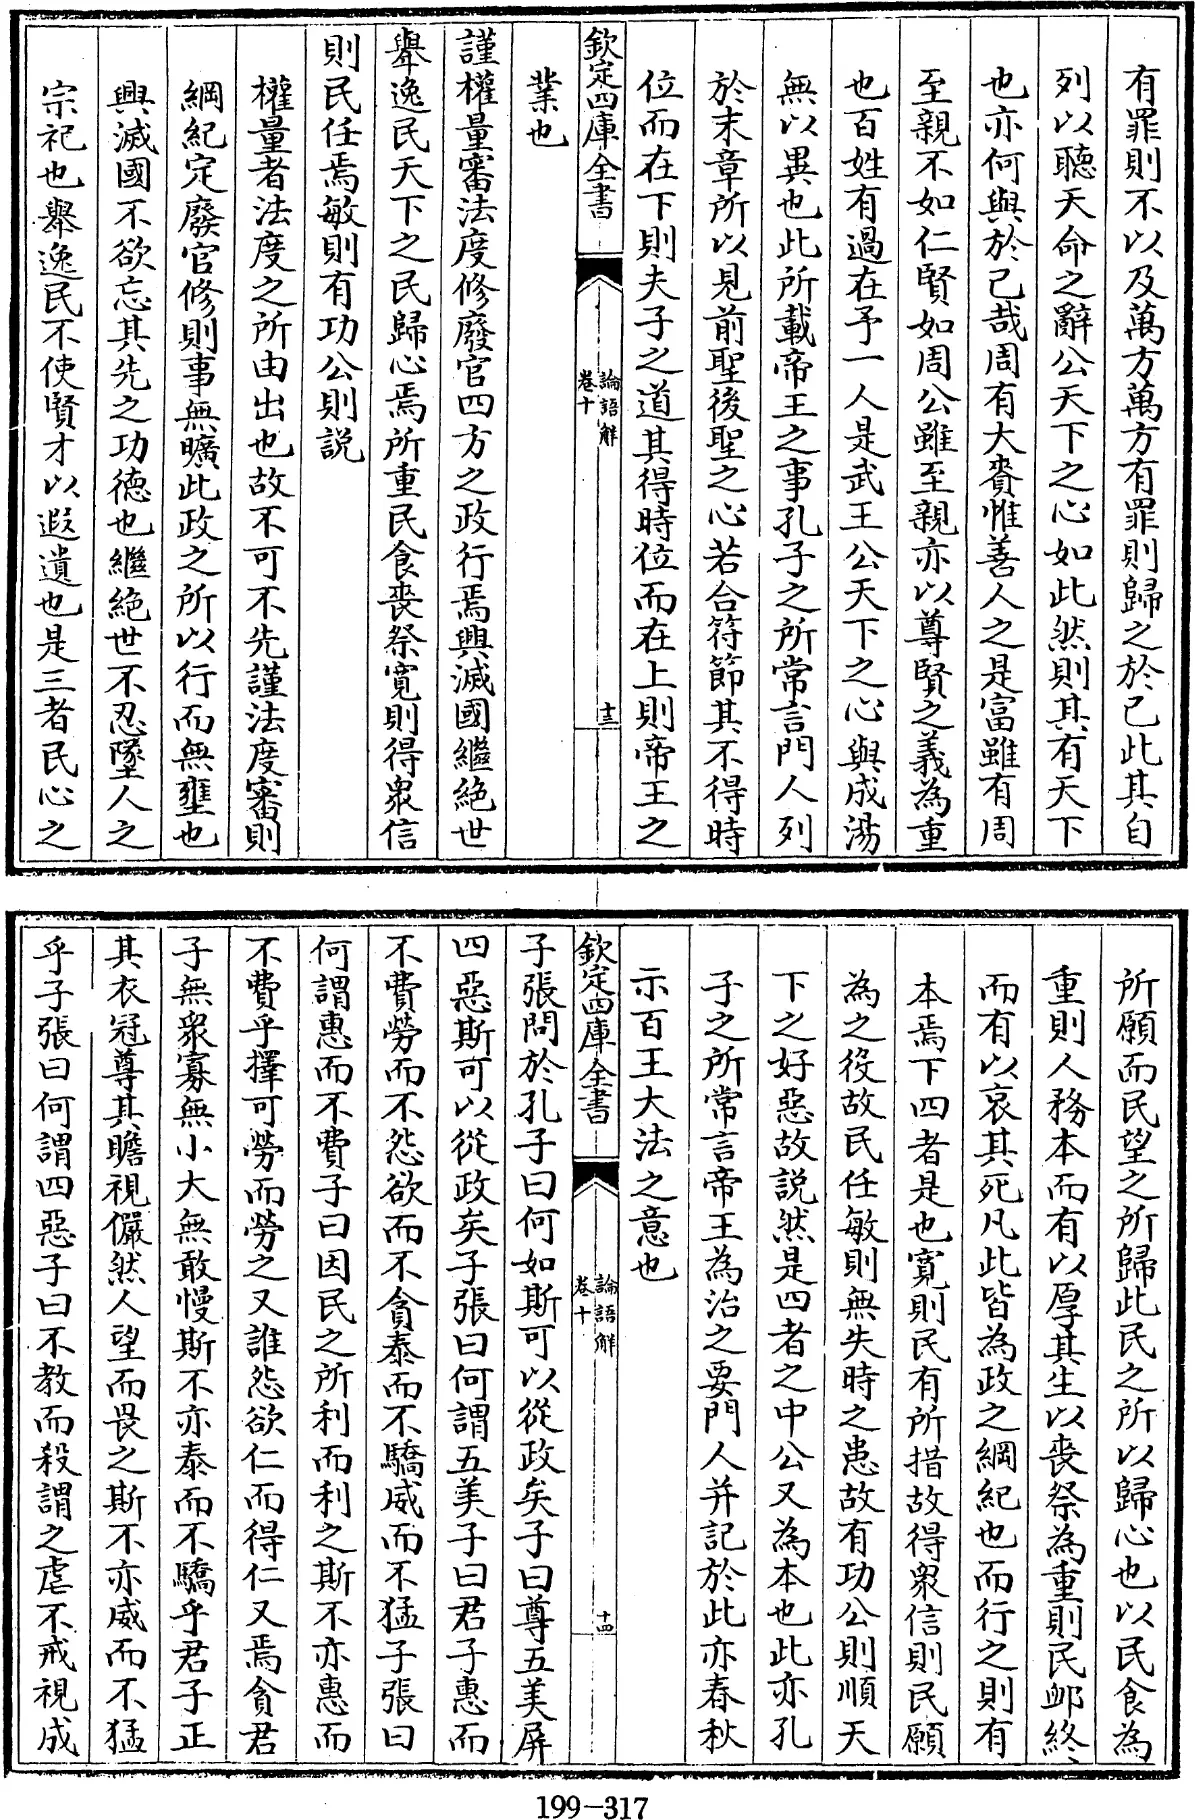 有罪則不以及萬方萬方有罪則歸之於己此其自
列以聽天命之辭公天下之心如此然則其有天下
也亦何與於己哉周有大賚惟善人之是富雖有周
至親不如仁賢如周公雖至親亦以尊賢之義為重
也百姓有過在予一人是武王公天下之心與成湯
無以異也此所載帝王之事孔子之所常言門人列
於末章所以見前聖後聖之心若合符節其不得時
位而在下則夫子之道其得時位而在上則帝王之
欽定四庫全書
論語解
卷十
十三
業也
謹權量審法度修廢官四方之政行焉興滅國繼絶世
舉逸民天下之民歸心焉所重民食喪祭寛則得衆信
則民任焉敏則有功公則説
權量者法度之所由出也故不可不先謹法度審則
綱紀定廢官修則事無曠此政之所以行而無壅也
興滅國不欲忘其先之功徳也繼絶世不忍墜人之
宗祀也舉逸民不使賢才以遐遺也是三者民心之
所願而民望之所歸此民之所以歸心也以民食為
重則人務本而有以厚其生以喪祭為重則民邮終
而有以哀其死凡此皆為政之綱紀也而行之則有
本焉下四者是也寛則民有所措故得衆信則民願
為之役故民任敏則無失時之患故有功公則順天
下之好惡故説然是四者之中公又為本也此亦孔
子之所常言帝王為治之要門人并記於此亦春秋
示百王大法之意也
欽定四庫全書
論語解
卷十
十四
子張問於孔子曰何如斯可以從政矣子曰尊五美屏
四惡斯可以從政矣子張曰何謂五美子曰君子惠而
不費勞而不怨欲而不貪泰而不驕威而不猛子張曰
何謂惠而不費子曰因民之所利而利之斯不亦惠而
不費乎擇可勞而勞之又誰怨欲仁而得仁又焉貪君
子無衆寡無小大無敢慢斯不亦泰而不驕乎君子正
其衣冠尊其瞻視儼然人望而畏之斯不亦威而不猛
乎子張曰何謂四惡子曰不教而殺謂之虐不戒視成
199-317